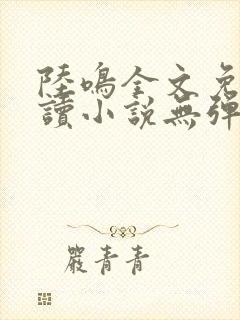 陸鳴全文免
讀小説無彈
嚴青青